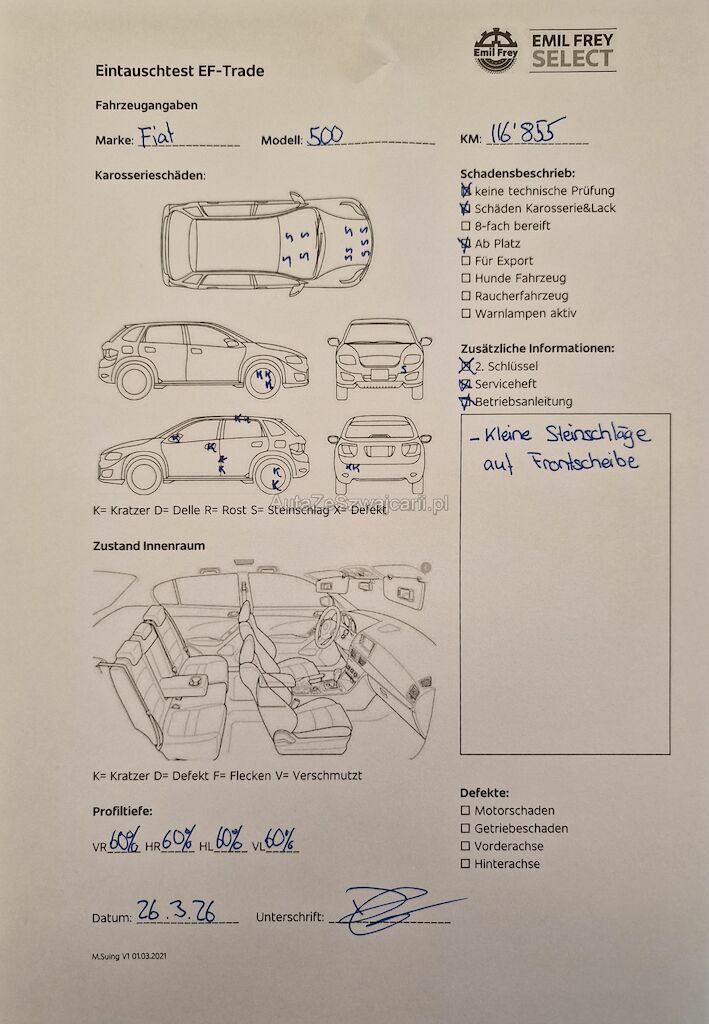 Emil Frey
EMIL FREY
SELECT
Eintauschtest EF-Trade
Fahrzeugangaben
Marke: Fiat Modell: 500 KM: 116'855
Karosserieschäden:
S S S S S S S S S S
K K K
S
K K K K K K K K
K K
K= Kratzer D= Delle R= Rost S= Steinschlag X= Defekt
AutaZeSzwajcarii.pl
Schadensbeschrieb:
keine technische Prüfung
Schäden Karosserie&Lack
8-fach bereift
Ab Platz
Für Export
Hunde Fahrzeug
Raucherfahrzeug
Warnlampen aktiv
Zusätzliche Informationen:
2. Schlüssel
Serviceheft
Betriebsanleitung
- Kleine Steinschläge
auf Frontscheibe
Zustand Innenraum
K= Kratzer D= Defekt F= Flecken V= Verschmutzt
Profiltiefe:
VR 60% HR 60% HL 60% VL 60%
Defekte:
Motorschaden
Getriebeschaden
Vorderachse
Hinterachse
Datum: 26.3.26 Unterschrift:
M.Suing V1 01.03.2021